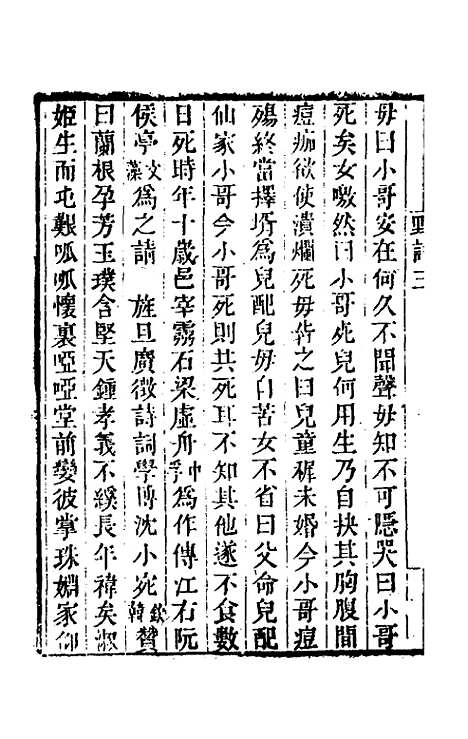 毋曰小哥安在何久不聞聲毋知不可隱哭曰小哥
死矣女噭然曰小哥死兒何用生乃自抉其胸腹間
痘痂欲使潰爛死毋止之曰兒童穉未婚今小哥痘
殤終當擇壻為兒配兒毋自苦女不省曰父命兒配
仙家小哥今小哥死則共死耳不知其他遂不食數
日死時年十歲邑宰霧石梁虛舟為作傳江右阮
侯亭為之請旌且廣徵詩詞學博沈小宛欽韓贊
曰蘭根孕芳玉璞含堅天鍾孝義不緩長年禕矣淑
姬生而屯艱呱呱懷裏啞啞堂前孌彼掌珠嫺家仰